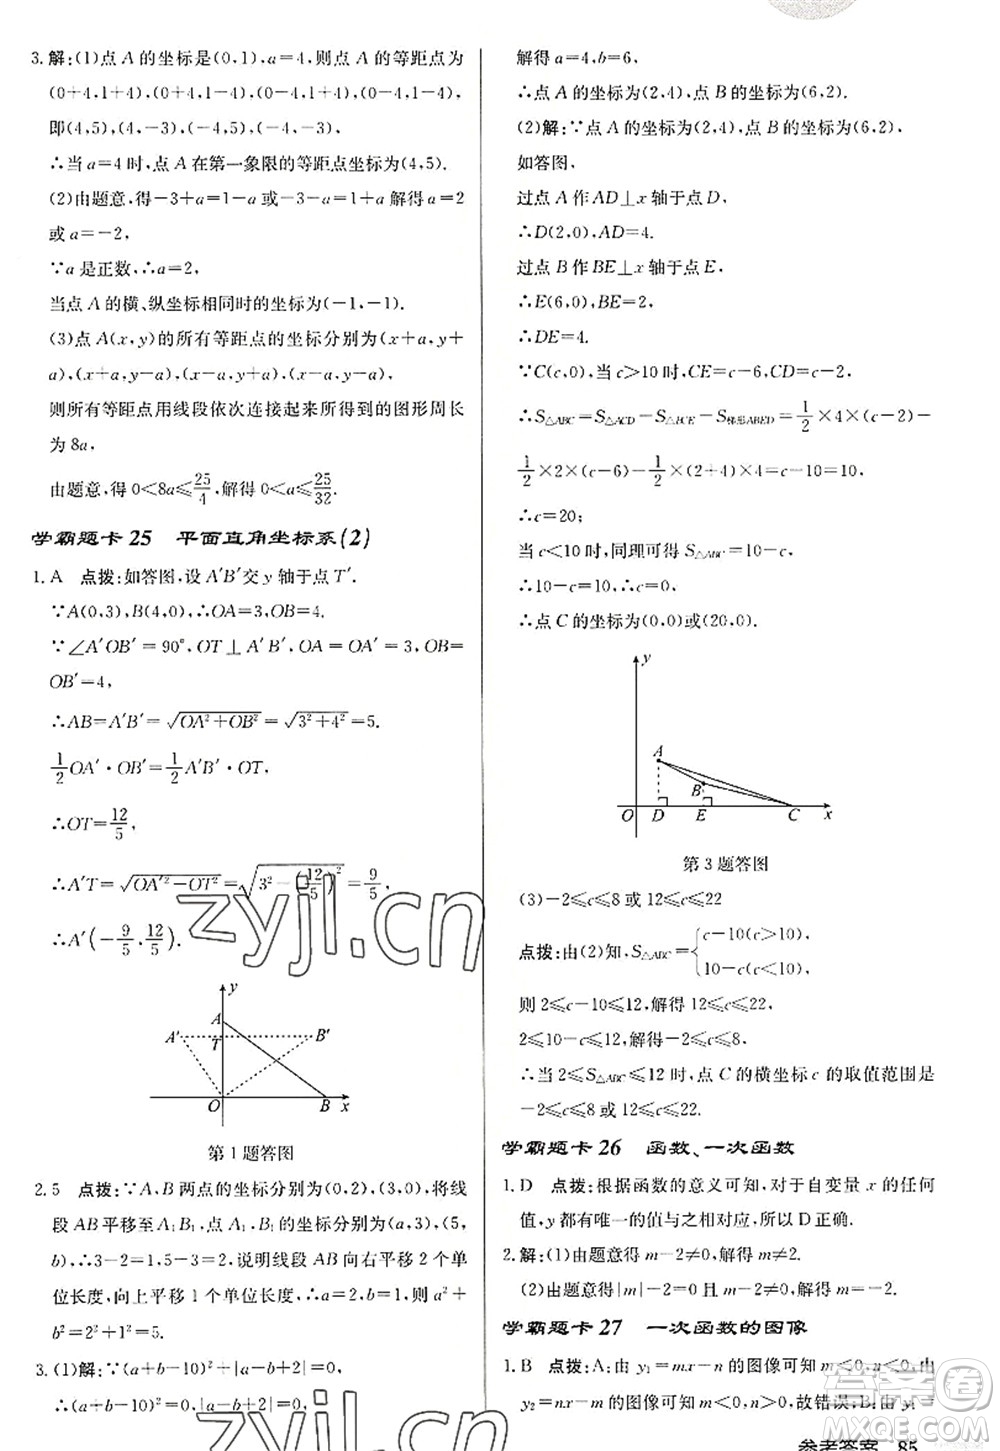 3. 解:(1)点 A 的坐标是(0,1),a=4,则点 A 的等距点为
(0+4,1+4),(0+4,1-4),(0-4,1+4),(0-4,1-4),
即(4,5),(4,-3),(-4,5),(-4,-3);
∴当 a=4时,点 A 在第一象限的等距点坐标为(4,5).
(2)由题意,得-3+a=1-a 或-3-a=1+a 解得 a=2
或 a=-2,
∵a 是正数,∴a=2,
当点 A 的横、纵坐标相同时的坐标为(-1,-1).
(3)点 A(x,y)的所有等距点的坐标分别为(x+a,y+
a),(x+a,y-a),(x-a,y+a),(x-a,y-a),
则所有等距点用线段依次连接起来所得到的图形周长
为 8a,
由题意,得 0<8a≤25/4,解得 0<a≤25/32.
学霸题卡 25 平面直角坐标系(2)
1. A 点拨:如答图,设 A′B′交 y 轴于点 T′.
∵A(0,3),B(4,0),∴OA=3,OB=4.
∵∠A′OB′=90°,OT⊥A′B′,OA′=OA=3,
OB′=4,
∴AB=A′B′=√(OA²+OB²)=√(3²+4²)=5.
1/2 OA′·OB′=1/2 A′B′·OT,
∴OT=12/5,
∴A′T=√(OA′²-OT²)=√(3²-(12/5)²)=9/5
∴A′(-9/5,12/5).
y
A
A′
T
B′
O
B
x
第 1 题答图
2. 5 点拨:∵A,B 两点的坐标分别为(0,2),(3,0),将线
段 AB 平移至 A₁B₁,点 A₁,B₁的坐标分别为(a,3),(5,
b),∴3-2=1,5-3=2,说明线段 AB 向右平移 2 个单
位长度,向上平移 1 个单位长度,∴a=2,b=1,则 a²+
b²=2²+1²=5.
3. (1)解:∵(a+b-10)²+|a-b+2|=0,
∴(a+b-10)²=0,|a-b+2|=0,
解得 a=4,b=6,
∴点 A 的坐标为(2,4),点 B 的坐标为(6,2).
(2)解:∵点 A 的坐标为(2,4),点 B 的坐标为(6,2),
如答图,
过点 A 作 AD⊥x 轴于点 D,
∴D(2,0),AD=4.
过点 B 作 BE⊥x 轴于点 E,
∴E(6,0),BE=2,
∴DE=4.
∵C(c,0),当 c>10 时,CE=c-6,CD=c-2,
∴S△ABC=S△ACD-S△BCE-S梯形ABED=1/2×4×(c-2)-
1/2×2×(c-6)-1/2×(2+4)×4=c-10=10,
∴c=20;
当 c<10 时,同理可得 S△ABC=10-c,
∴10-c=10,∴c=0,
∴点 C 的坐标为(0,0)或(20,0).
y
A
B
O
D
E
C
x
第 3 题答图
(3)-2≤c≤8或12≤c≤22
点拨:由(2)知,S△ABC={c-10(c>10)
10-c(c<10),
则 2≤c-10≤12,解得 12≤c≤22,
2≤10-c≤12,解得-2≤c≤8;
∴当 2≤S△ABC≤12 时,点 C 的横坐标 c 的取值范围是
-2≤c≤8 或 12≤c≤22.
学霸题卡 26 函数、一次函数
1. D 点拨:根据函数的意义可知,对于自变量 x 的任何
值,y 都有唯一的值与之相对应,所以 D 正确.
2. 解:(1)由题意得 m-2≠0,解得 m≠2.
(2)由题意得|m|-1=1 且 m-2≠0,解得 m=-2.
学霸题卡 27 一次函数的图像
1. B 点拨:A:由 y₁=mx-n 的图像可知 m<0,n<0,由
y₂=nx-m 的图像可知 m<0,n>0,故错误;B:由 y₁=
zyjl.cn
答案圈
参考答案 85